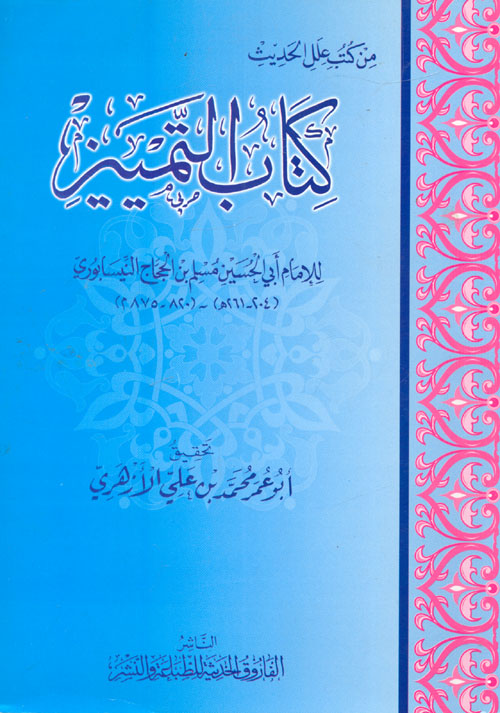 مِن كُتُبِ عِلَلِ الحَدِيْثِ
كِتَابُ التَّمْيِيْزِ
لِلإِمَامِ أَبِي الحُسَيْن مُسْلِم بْنِ الحَجَّاجِ النَّيْسَابُورِي
(٢٠٤-٢٦١هـ) - (٨٢٠-٨٧٥م)
تَحْقِيْقُ
أَبُو عُمَر مُحَمَّد بْن عَلِيّ الأَزْهَرِيّ
النَّاشِرُ
الفَارُوقُ الحَدِيثَةُ لِلطِّبَاعَةِ وَالنَّشْرِ